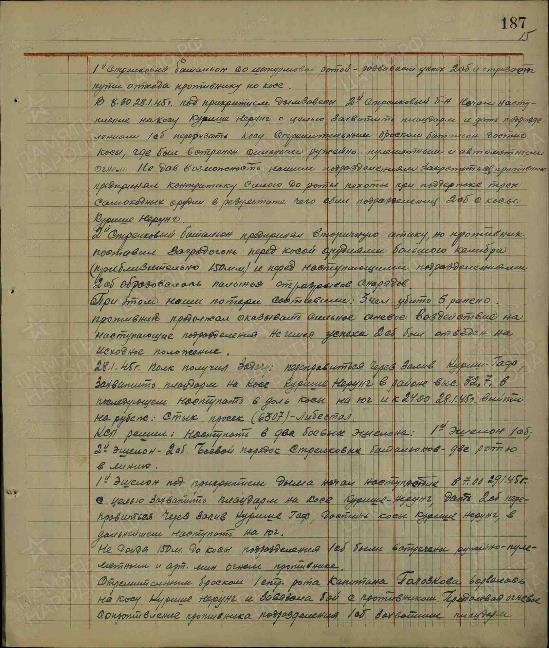 187
15
1й Стрелковый батальон со штурмовой ротой - развивают успех 2сб и отрезают
пути отхода противнику по косе.
В 8.00 28.1.45г. под прикрытием дымзавесы 2й Стрелковый б-н начал насту-
пление на косу Курише Нерунг с целью захватить плацдарм и дать подразде-
лениям 1сб перерезать косу. Стремительным броском батальон достиг
косы, где был встречен сильным ружейно-пулеметным и автоматным
огнем. Не дав возможность нашим подразделениям закрепиться противник
предпринял контратаку силой до роты пехоты при поддержке трех
самоходных орудий в результате чего сбил подразделения 2сб с косы
Курише Нерунг.
2й Стрелковый батальон предпринял вторичную атаку, но противник
поставил загрядогонь перед косой орудиями большого калибра
(приблизительно 150мм) и перед наступающими подразделениями
2сб образовалась полынья от разрывов снарядов.
При этом наши потери составили: 3 чел убито 5 ранено.
Противник продолжал оказывать сильное огневое воздействие на
наступающие подразделения. Не имея успеха 2сб был отведен на
исходное положение.
28.1.45г. Полк получил задачу: переправиться через залив Куриш-Гаф,
захватить плацдарм на косе Курише Нерунг в районе выс. 32,7, в
последующем наступать вдоль косы на юг и к 24.00 28.1.45г. выйти
на рубеж: Стык просек (6307)-
КСП решил: наступать в два боевых эшелона: 1й эшелон 1сб,
2й эшелон - 2сб боевой порядок Стрелковых батальонов - две роты
в линию.
1й эшелон под прикрытием дыма начал наступление в 7.00 29.1.45г.
с целью захватить плацдарм на косе Курише-Нерунг дать 2сб пере-
правиться через залив Курише Гаф, достичь косы Курише Нерунг, в
дальнейшем наступать на юг.
Не дойдя 150м. до косы подразделения 1сб были встречены ружейно-пуле-
метным и арт. мин огнем противника.
Стремительным броском 1 стр. рота капитана ворвалась
на косу Курише Нерунг и завязала бой с противником. Преодолевая огневое
сопротивление противника подразделения 1сб захватили плацдарм